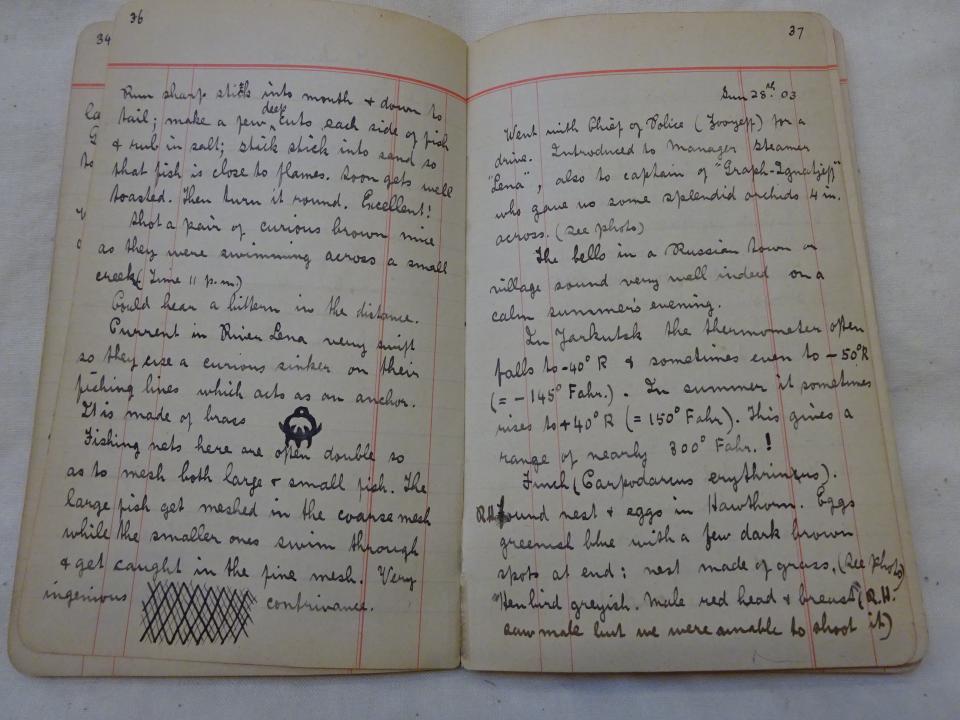 36
34
Run sharp stick into mouth & down to
tail; make a few deep cuts each side of fish
& rub in salt; stick stick into sand so
that fish is close to flames. Soon gets well
toasted. Then turn it round. Excellent!
Shot a pair of curious brown mice
as they were swimming across a small
creek (Time 11 p.m.)
Could hear a bittern in the distance.
Current in River Lena very swift
so they use a curious sinker on their
fishing lines which acts as an anchor.
It is made of brass
Fishing nets here are often double so
as to mesh both large & small fish. The
large fish get meshed in the coarse mesh
while the smaller ones swim through
& get caught in the fine mesh. Very
ingenious contrivance.
37
Sun 28th 03
Went with Chief of Police (Zooyeff) for a
drive. Introduced to Manager steamer
"Lena", also to captain of "Graph-Ignatjeff"
who gave us some splendid orchids 4 in.
across. (see photo)
The bells in a Russian town or
village sound very well indeed on a
calm summer's evening.
In Jarkutsk the thermometer often
falls to -40° R & sometimes even to -50°R
(= - 145° Fahr.). In summer it sometimes
rises to +40° R (= 150° Fahr). This gives a
range of nearly 300° Fahr. !
Finch (Carpodacus erythrinus).
R.H. Found nest & eggs in Hawthorn. Eggs
greenish blue with a few dark brown
spots at end: nest made of grass. (see photo)
Hen bird greyish. Male red head & breast (R.H.
saw male but we were unable to shoot it)